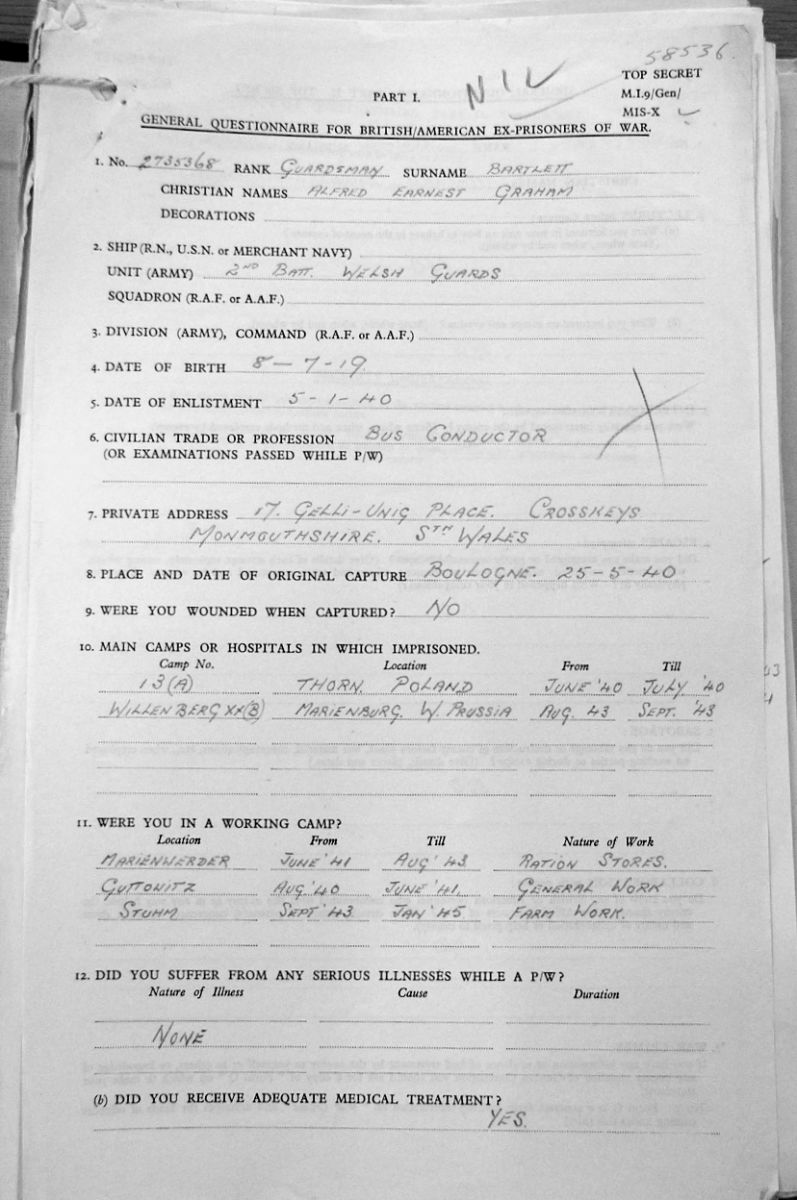 58536.
NIL
TOP SECRET
PART I.
M.I.9/Gen/
MIS-X
GENERAL QUESTIONNAIRE FOR BRITISH/AMERICAN EX-PRISONERS OF WAR.
1. No. 2735368 RANK GUARDSMAN SURNAME BARTLETT
CHRISTIAN NAMES ALFRED EARNEST GRAHAM
DECORATIONS
2. SHIP (R.N., U.S.N. or MERCHANT NAVY)
UNIT (ARMY) 2ND BATT. WELSH GUARDS
SQUADRON (R.A.F. or A.A.F.)
3. DIVISION (ARMY), COMMAND (R.A.F. or A.A.F.)
4. DATE OF BIRTH 8-7-19.
5. DATE OF ENLISTMENT 5-1-40
6. CIVILIAN TRADE OR PROFESSION BUS CONDUCTOR
(OR EXAMINATIONS PASSED WHILE P/W)
7. PRIVATE ADDRESS 17. GELLI-UNIG PLACE. CROSSKEYS
MONMOUTHSHIRE. STH WALES
8. PLACE AND DATE OF ORIGINAL CAPTURE BOULOGNE. 25-5-40
9. WERE YOU WOUNDED WHEN CAPTURED? NO
10. MAIN CAMPS OR HOSPITALS IN WHICH IMPRISONED.
Camp No. Location From Till
13(A) THORN. POLAND JUNE '40 JULY '40
WILLENBERG XX(B) MARIENBURG. W. PRUSSIA AUG. 43 SEPT. '43
11. WERE YOU IN A WORKING CAMP?
Location From Till Nature of Work
MARIENWERDER JUNE '41 AUG' 43 RATION STORES.
GUTTOWITZ AUG '40 JUNE '41. GENERAL WORK
STUHM SEPT' 43 JAN '45 FARM WORK.
12. DID YOU SUFFER FROM ANY SERIOUS ILLNESSES WHILE A P/W?
Nature of Illness Cause Duration
NONE
(b) DID YOU RECEIVE ADEQUATE MEDICAL TREATMENT?
YES.